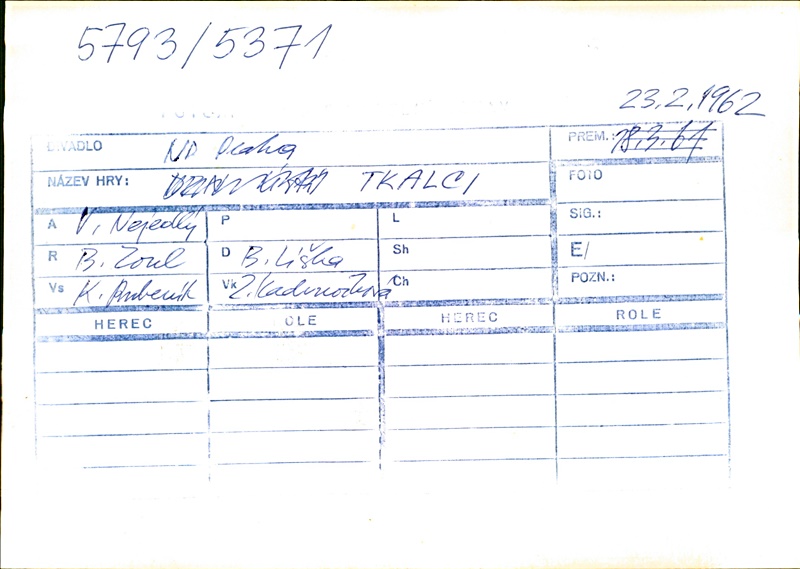 5793/5371
23.2.1962
DIVADLO ND Praha PREM.: 18.3.61
NÁZEV HRY: TKALCI FOTO
A V. Nejedlý P L SIG.:
R B. Zoul D B. Liška Sh E/
Vs K. Bubeník Vk Z. Kadrnožková Ch POZN.:
HEREC OLE HEREC ROLE